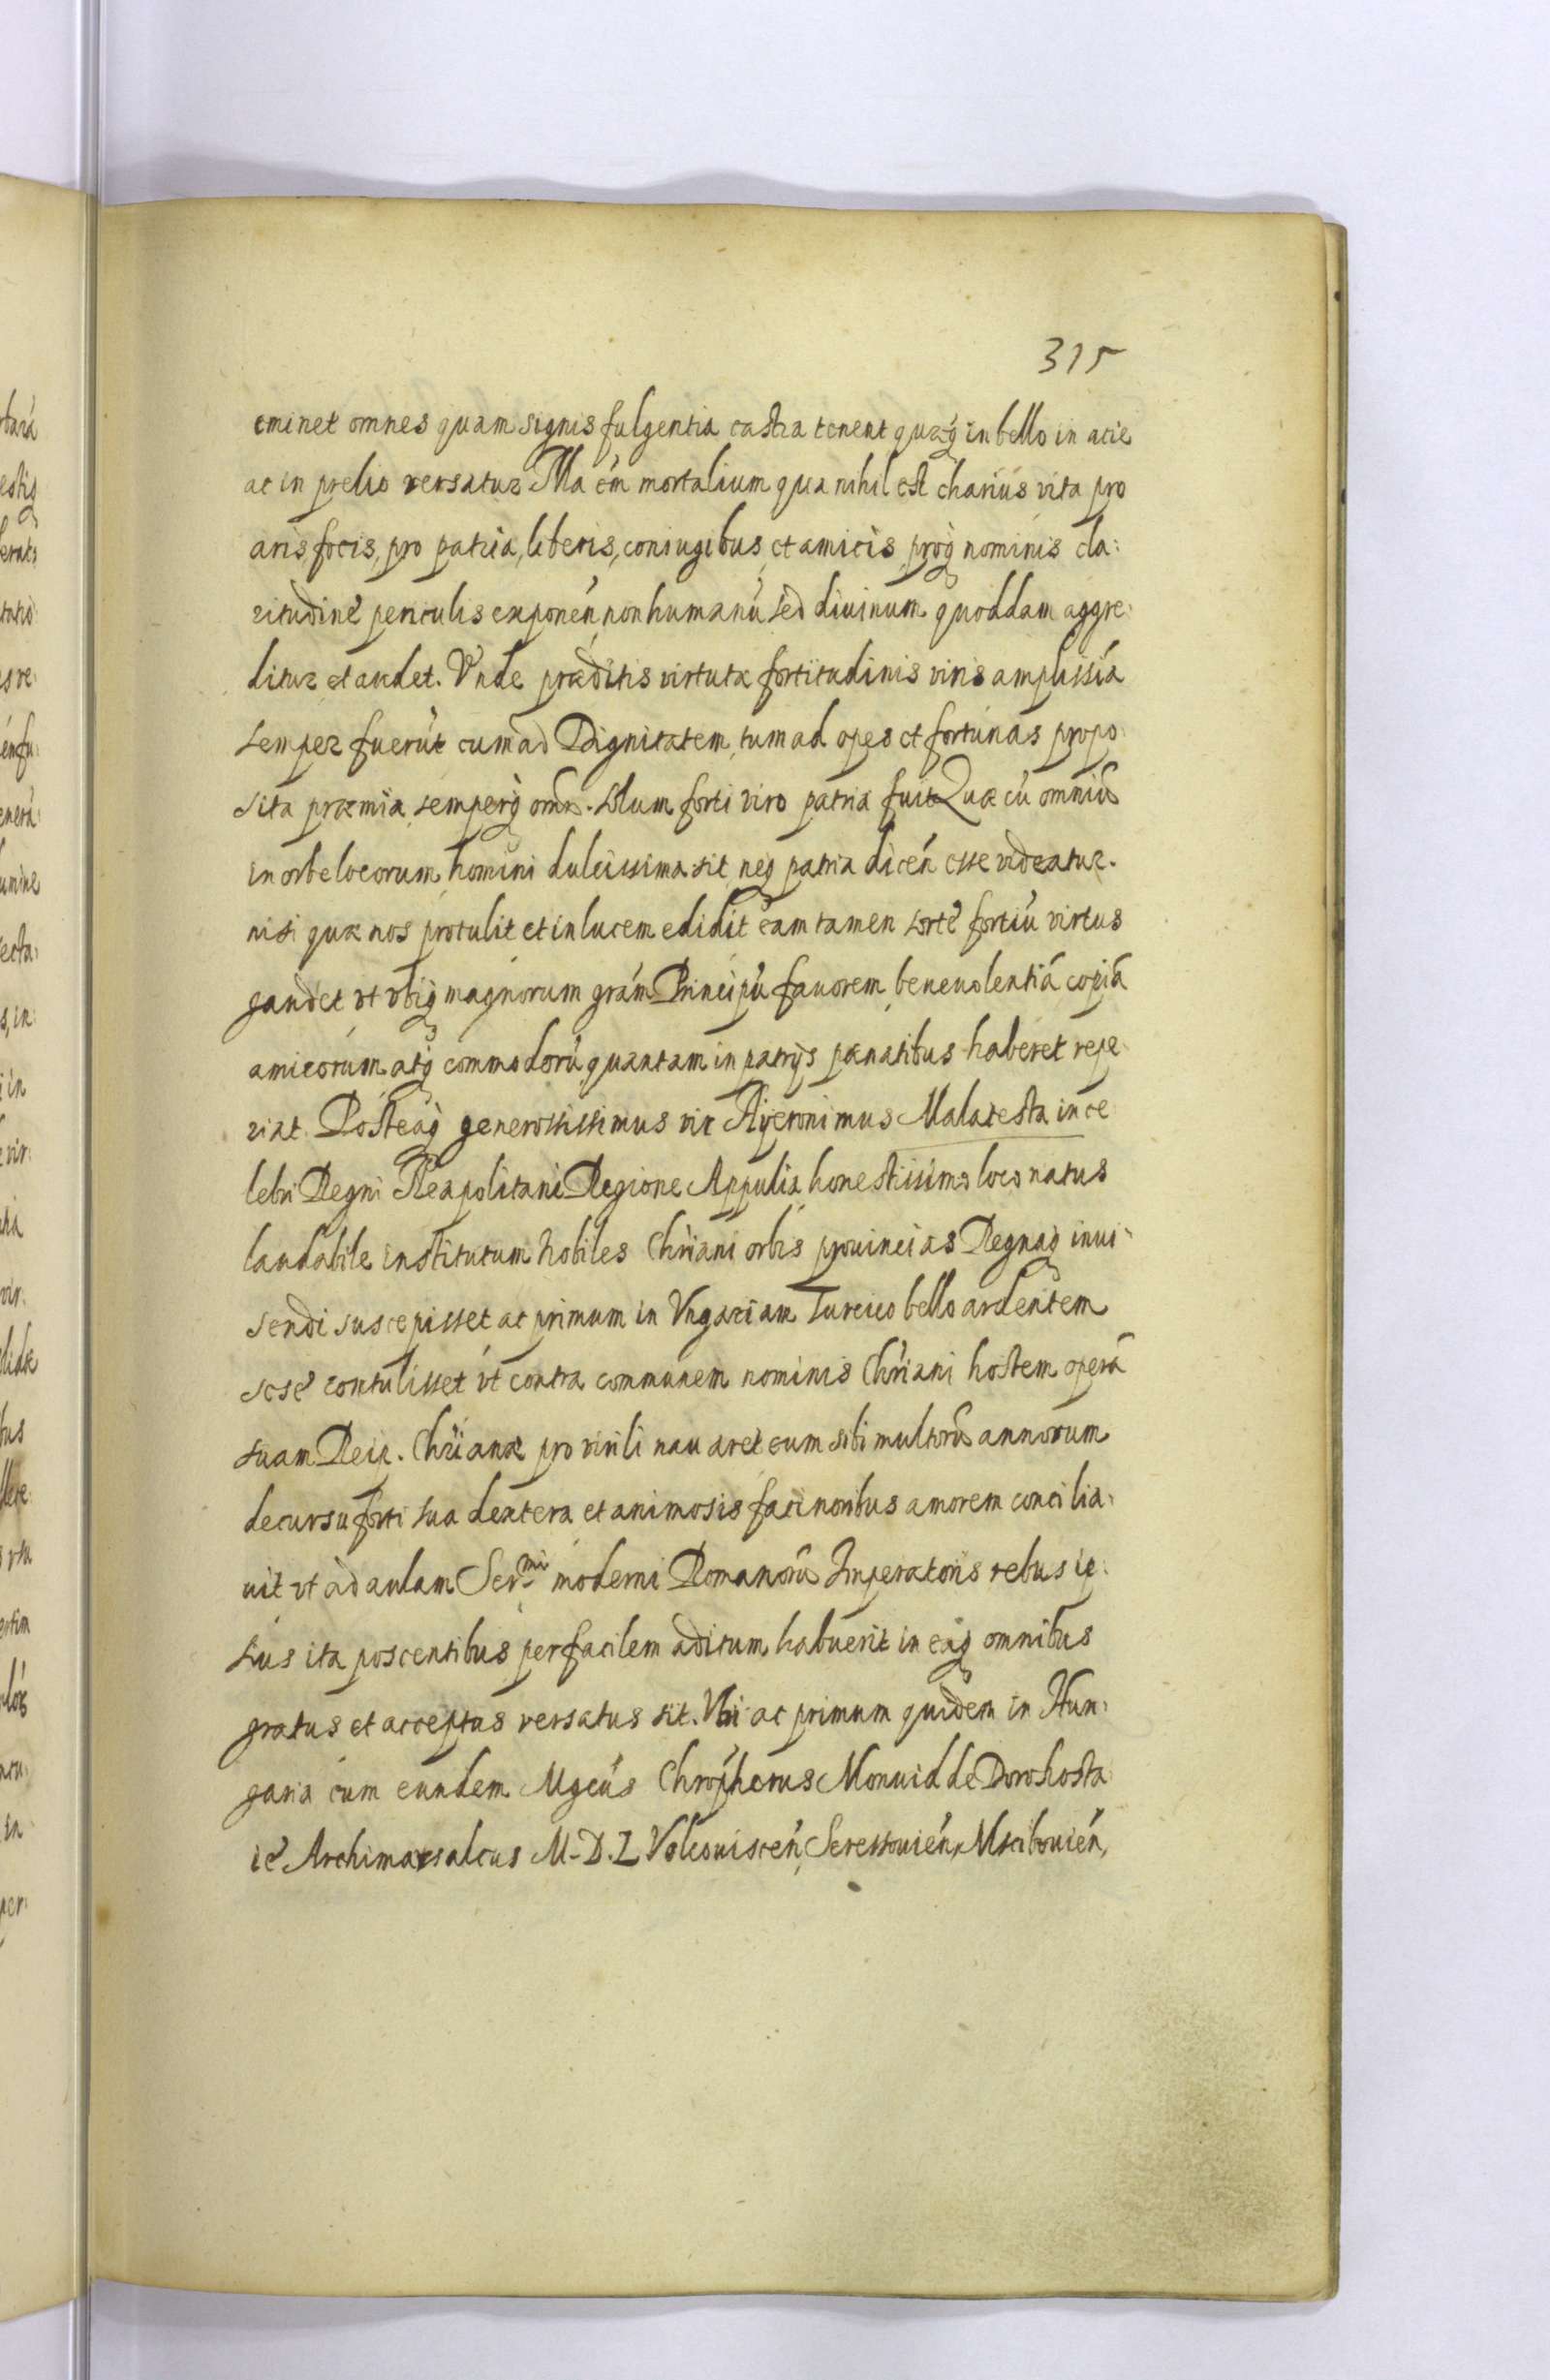 315
eminet omnes quam signis fulgentia castra tenent quæq́ in bello in acie
ac in prelio versatur Illa em̃ mortalium qua nihil est charius vita pro
aris, focis, pro patria, liberis, coniugibus et amicis proq́ nominis cla:
ritudinẽ periculis exponeń non humanũ sed diuinum quoddam aggre:
ditur et audet. Vnde præditis virtutæ fortitudinis viris amplissiá
semper fuerũt cum ad Dignitatem, tum ad opes et fortunas propo:
sita præmia, semperq́ om̃e. solum forti viro patria fuit Quæ cũ omniũ
in orbe locorum homini dulcissima sit neq́ patria diceń esse videatur.
nisi quæ nos protulit et in lucem edidit eam tamen sortẽ fortiũ virtus
gaudet vt vbiq́ magnorum grám Principũ fauorem beneuolentiã copiã
amicorum atq́ commodorũ quantam in patrijs pænatibus haberet repe:
riat Posteaq́ generosissimus vir Hyeronimus Malatesta in ce:
lebri Regni Neapolitani Regione Appulia honestissimo loco natus
laudabile institutum nobiles Chriáni orbis prouincias Regnaq́ inui:
sendi suscepisset ac primum in Vngariam Turcico bello ardentem
sesẽ contulisset vt contra communem nominis Chriáni hostem operã
suam Reip. Chriánæ pro virili nauaret eum sibi multorũ annorum
decursu forti sua dextera et animosis facinoribus amorem concilia:
uit vt ad aulam Ser.mi moderni Romanorũ Imperatoris rebus ip:
sius ita poscentibus perfacilem aditum habuerit in eaq́ omnibus
gratus et acceptus versatus sit. Vbi ac primum quidem in Hun:
garia cum eundem Mgcũs Chroṕherus Monuid de Dorohosta:
iẽ Archimarsalcus M. D. L Volcouisceń, Seressouień, Mscibouień,